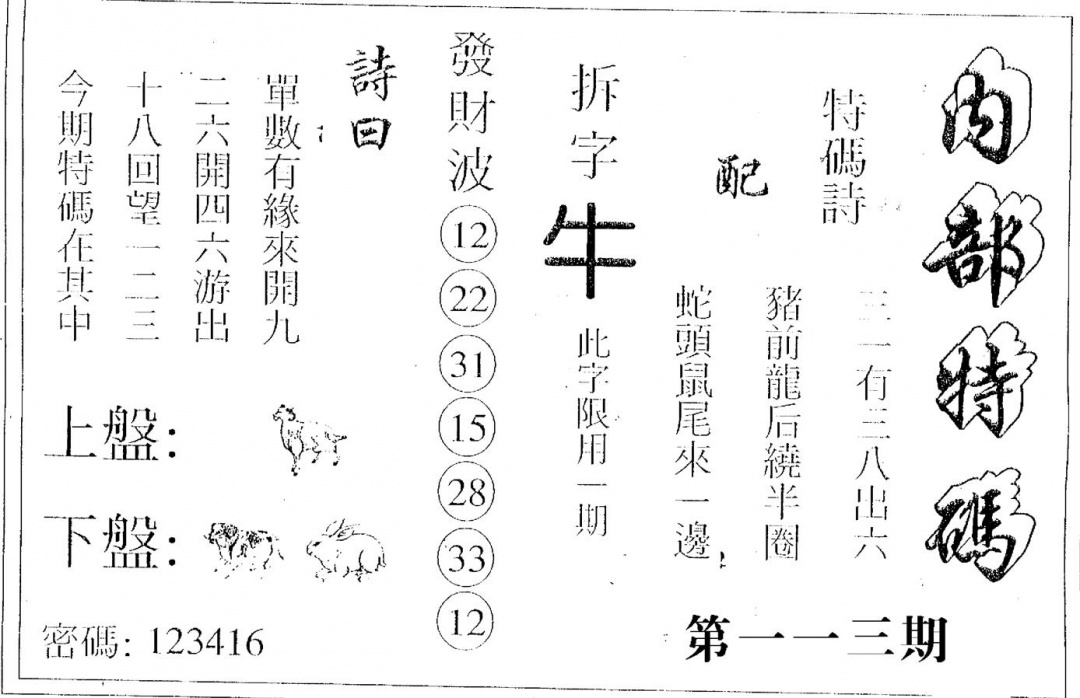 內部特碼
特碼詩
三一有三八出六
配
豬前龍后繞半圈
蛇頭鼠尾來一邊
第一一三期
拆字
牛
此字限用一期
發財波
12
22
31
15
28
33
12
詩曰
單數有緣來開九
二六開四六游出
十八回望一二三
今期特碼在其中
上盤：
下盤：
密碼：123416